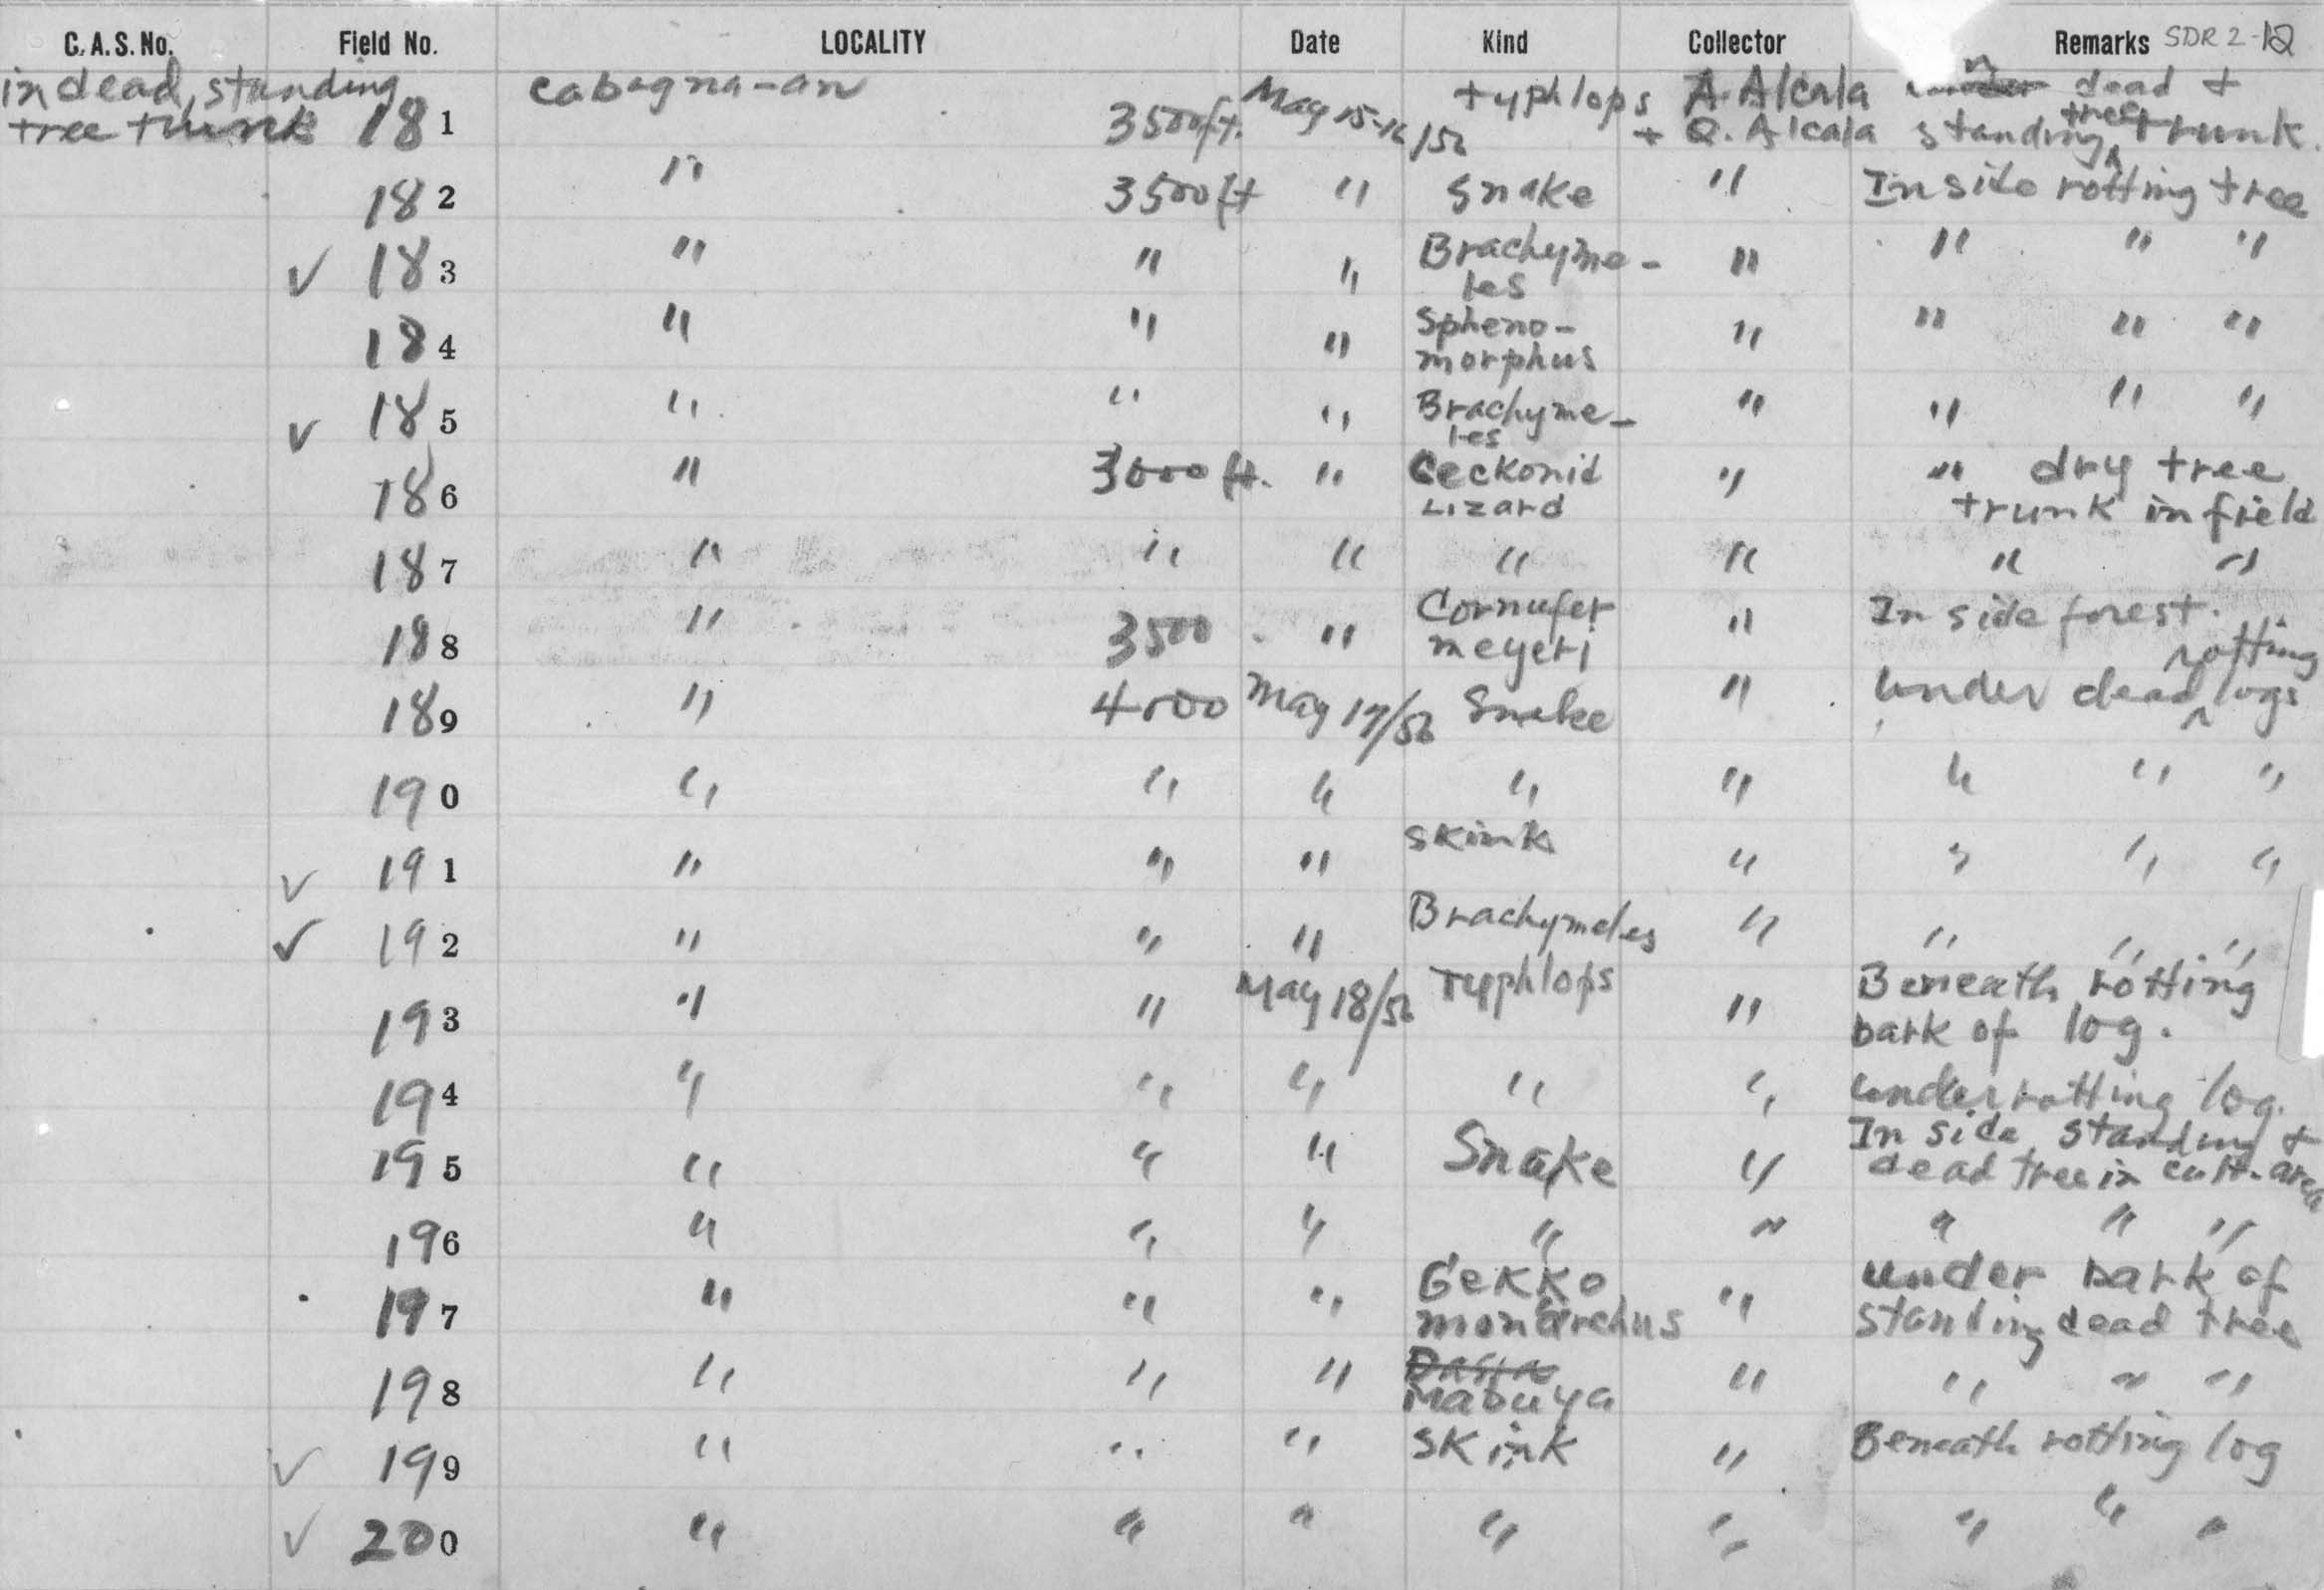 C.A.S. No. Field No. LOCALITY Date Kind Collector Remarks SDR 2-12
in dead, standing tree trunk 181 Cabagna-an 3500ft. May 15-16/56 Typhlops A. Alcala + Q. Alcala in dead + standing tree trunk.
182 " 3500ft " Snake " Inside rotting tree
✓ 183 " " " Brachyme-les " " " "
184 " " " Spheno-morphus " " " "
✓ 185 " " " Brachyme-les " " " "
186 " 3000 ft. " Geckonid Lizard " " dry tree trunk in field
187 " " " " " " "
188 " 3500 " Cornufer meyeri " Inside forest.
189 " 4000 May 17/56 Snake " Under dead rotting logs
190 " " " " " " " "
✓ 191 " " " Skink " " " "
✓ 192 " " " Brachymeles " " " "
193 " " May 18/56 Typhlops " Beneath rotting bark of log.
194 " " " " " under rotting log.
195 " " " Snake " Inside standing + dead tree in cult. area
196 " " " " " " " "
197 " " " Gekko monarchus " under bark of standing dead tree
198 " " " Dasia Mabuya " " " "
✓ 199 " " " Skink " Beneath rotting log
✓ 200 " " " " " " " "